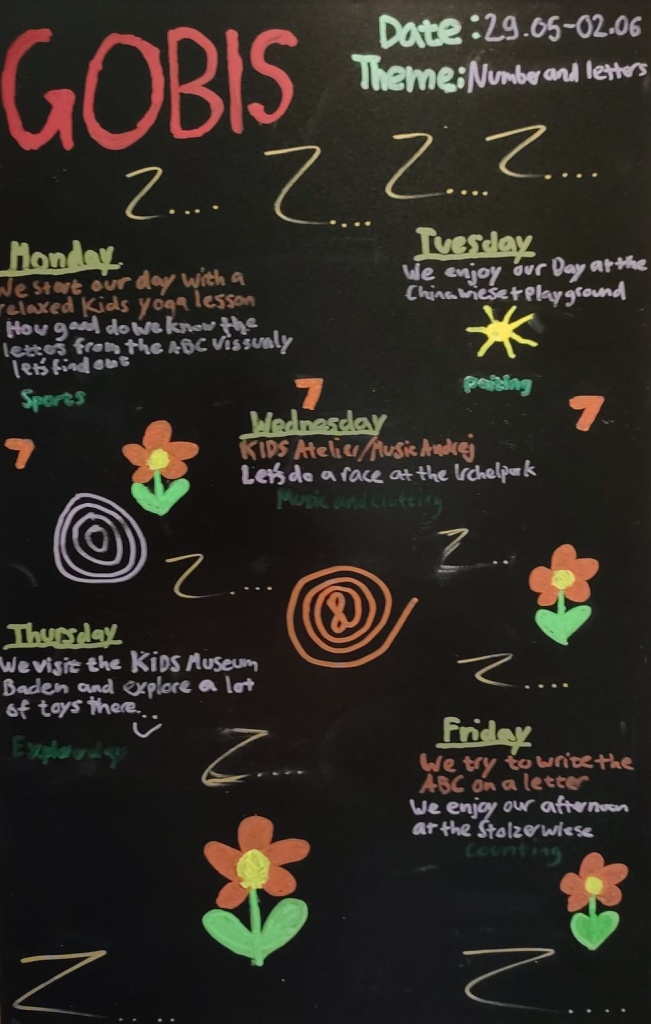 GOBIS
Date: 29.05-02.06
Theme: Number and letters
Z....
Z....
Z....
Z....
Monday
We start our day with a
relaxed Kids yoga lesson
How good do we know the
letters from the ABC vissualy
let's find out
Sports
Tuesday
We enjoy our Day at the
Chinawiese + Playground
paiting
7
7
7
Wednesday
KIDS Atelier/Music Andrej
Let's do a race at the Irchelpark
Music and
Z....
Z...
8
Thursday
We visit the KIDS Museum
Baden and explore a lot
of toys there...
Explourday
Z....
Z....
Friday
We try to write the
ABC on a letter
We enjoy our afternoon
at the Stolzewiese
Counting
Z....
Z....